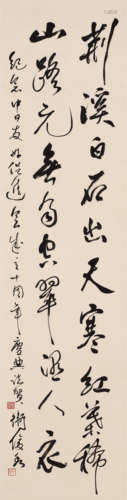 荆溪白石出天寒红叶稀
山路元无雨空翠湿人衣
纪念中日友好促进会成立十周年庆典志贺
卫俊秀